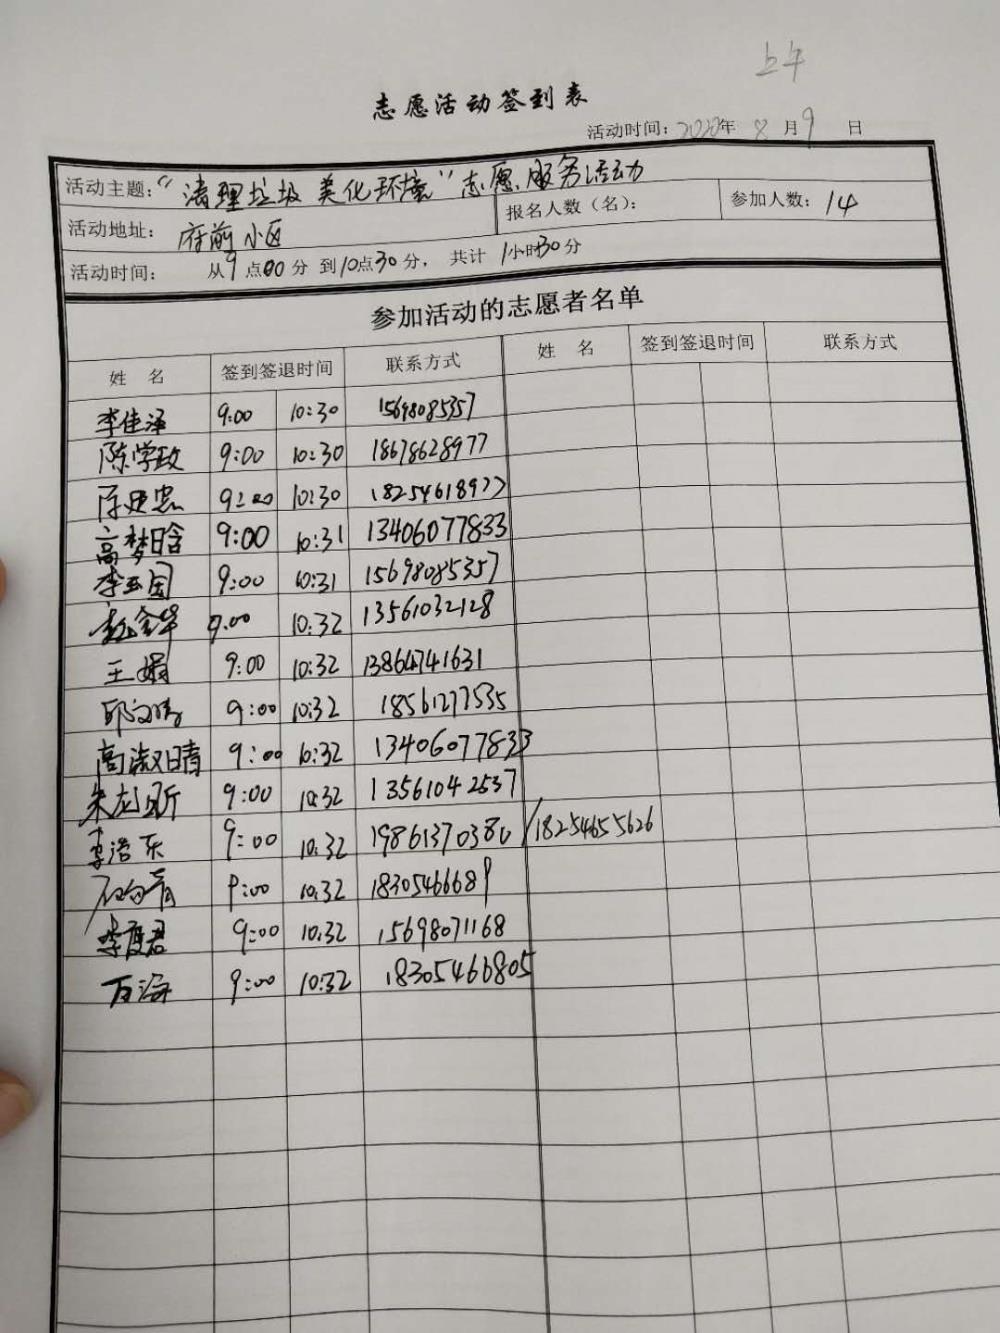 上午
志愿活动签到表
活动时间：2020年 8 月 9 日
活动主题：“清理垃圾 美化环境”志愿服务活动
活动地址： 府前小区 报名人数（名）： 参加人数：14
活动时间： 从9点00分 到10点30分， 共计 1小时30分
参加活动的志愿者名单
姓 名 签到签退时间 联系方式 姓 名 签到签退时间 联系方式
李佳泽 9:00 10:30 15698085357
陈学政 9:00 10:30 18678628977
9:00 10:30 18254618977
高梦晗 9:00 10:31 13406077833
李玉国 9:00 10:31 15698085357
9:00 10:32 13561032128
王娟 9:00 10:32 13864741631
邱文涛 9:00 10:32 18561277535
高淑晴 9:00 10:32 13406077833
朱龙昕 9:00 10:32 13561042537
李浩东 9:00 10:32 19861370380 /18254655626
9:00 10:32 18305466689
李度君 9:00 10:32 15698071168
万海 9:00 10:32 18305466805